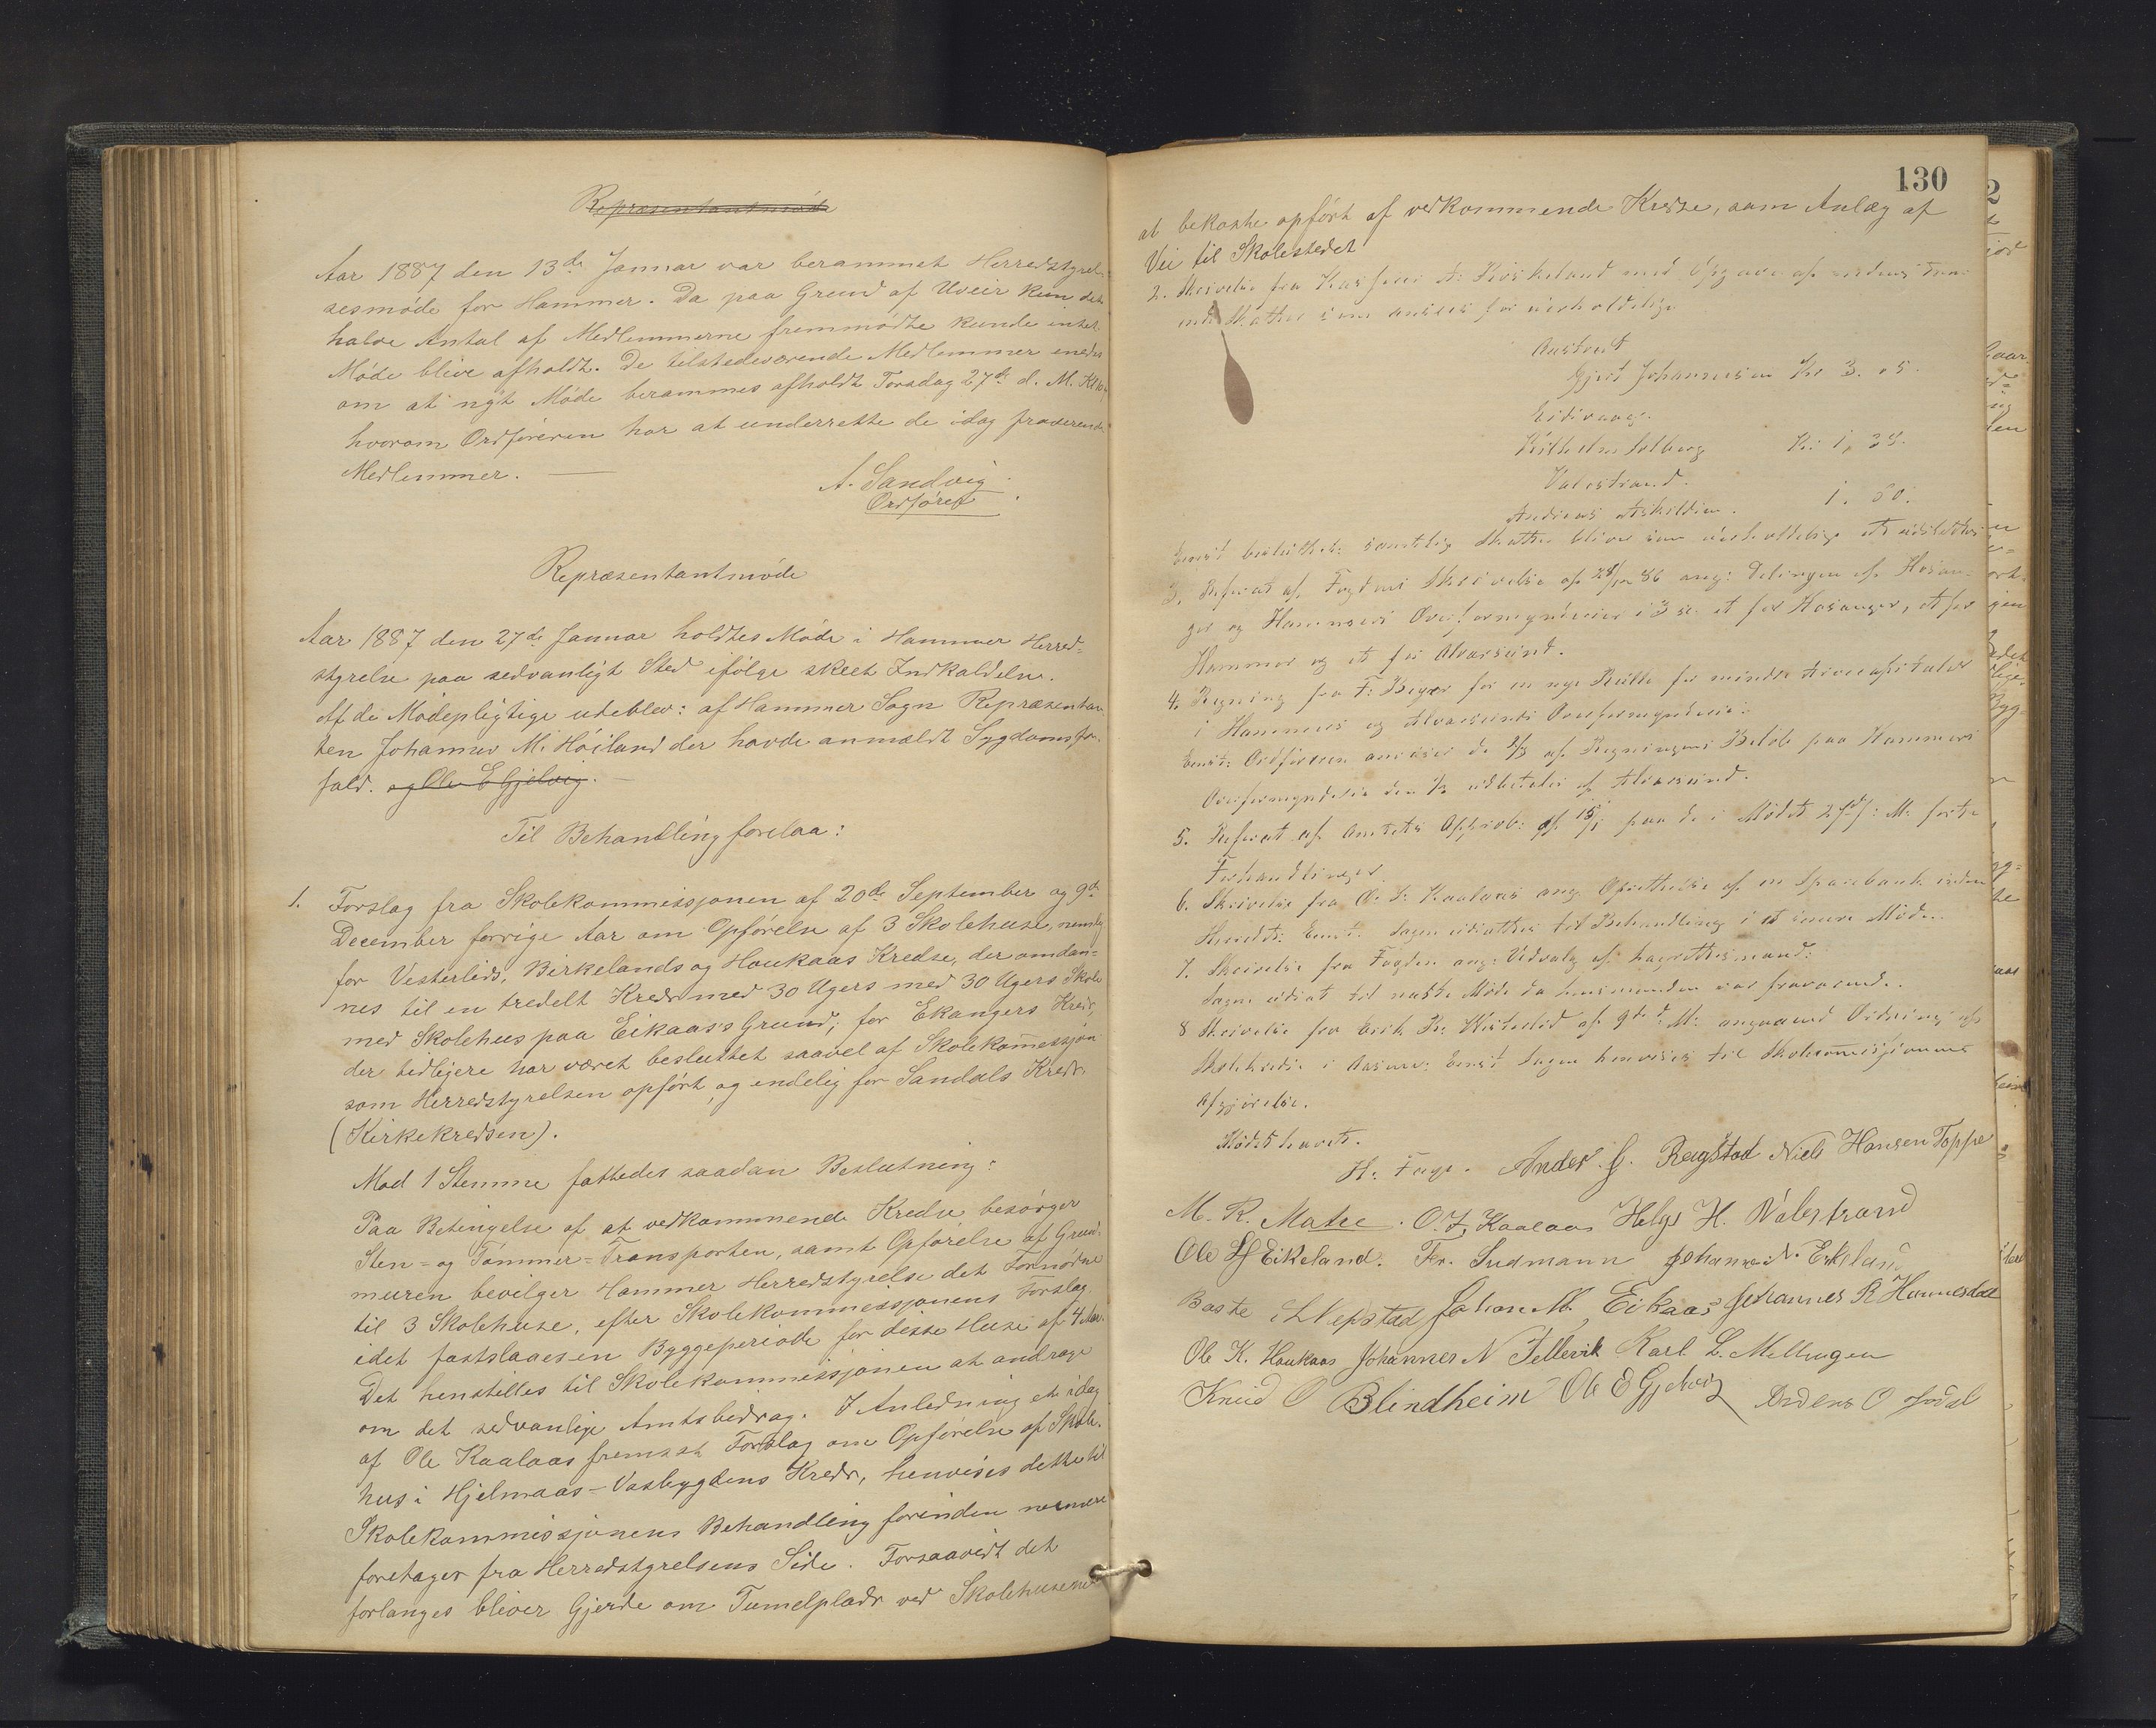 Repræsentantmøde
Aar 1887 den 13de Januar var berammet Herredstyrel-
sesmøde for Hammer. Da paa Grund af Uveir kun det
halve Antal af Medlemmerne fremmødte kunde intet
Møde blive afholdt. De tilstedeværende Medlemmer enedes
om at nyt Møde berammes afholdt Torsdag 27de d. M. Kl 10
hvorom Ordføreren har at underrette de idag fraværende
Medlemmer. —
A. Sandvig
Ordfører
Repræsentantmøde
Aar 1887 den 27de Januar holdtes Møde i Hammer Herred-
styrelse paa sedvanligt Sted ifølge skeet Indkaldelse.
Af de Mødepligtige udeblev: af Hammer Sogn Repræsentan-
ten Johannes M. Høiland der havde anmeldt Sygdomsfor-
fald. og Ole E Gjelvig. —
Til Behandling forelaa:
1. Forslag fra Skolekommissjonen af 20de September og 9de
December forrige Aar om Opførelse af 3 Skolehuse, nemlig
for Vesterlids, Birkelands og Haukaas Kredse, der omdan-
nes til en tredelt Kreds med 30 Ugers med 30 Ugers Skole
med Skolehus paa Eikaas's Grund; for Ekangers Kreds,
der tidligere har været besluttet saavel af Skolekommissjon
som Herredstyrelsen opført, og endelig for Sandals Kreds.
(Kirkekredsen).
Mod 1 Stemme fattedes saadan Beslutning:
Paa Betingelse af at vedkommende Kredse besørger
Sten- og Tømmer-Transporten, samt Opførelse af Grund-
muren bevilger Hammer Herredstyrelse det Fornødne
til 3 Skolehuse, efter Skolekommissjonens Forslag
idet fastslaaes en Byggeperiode for disse Huse af 4 Aar.
Det henstilles til Skolekommissjonen at andrage
om det sedvanlige Amtsbidrag. I Anledning et idag
af Ole Kaalaas fremsat Forslag om Opførelse af Skole-
hus i Hjelmaas-Vasbygdens Kreds, henvises dette til
Skolekommissjonens Behandling forinden nærmere
foretages fra Herredstyrelsens Side. Forsaavidt det
forlanges bliver Gjerde om Tumelplads ved Skolehusene
130
at bekoste opført af vedkommende Kredse, som Anlæg af
Vei til Skolestedet
2. Skrivelse fra Kasserer A. Birkeland med Opgave af
Skatter som ansees for uerholdelige
Gjert Johannesen Kr 3.05.
Eidsvaag.
Vilhelm Solberg Kr. 1,38.
Valestrand.
Andreas Askildsen. 1.50.
Enst. besluttet: samtlige Skatter bliver som uerholdelige at udslette
3. Referat af Fogdens Skrivelse af 28/12 86 ang: Delingen af Hosan-
ger og Hammers Overformynderier i 3 sc. et for Hosanger, et for
Hammer og et for Alversund.
4. Regning fra F. Beyer for en nye Bøtte for mindre Arvecapitaler
i Hammers og Alversunds Overformynderi:
Enst: Ordføreren anviser de 2/3 af Regningens Beløb paa Hammers
Overformynderie den 1/3 udbetales af Alversund.
5. Referat af Amtets Approb: af 15/1 paa de i Mødet f: M: førte
Forhandlinger
6. Skrivelse fra O. I. Kaalaas ang Oprettelse af en Sparebank inden
Herredet: Enst. Sagen udsættes til Behandling i et senere Møde.
7. Skrivelse fra Fogden ang: Udvalg af Lagrettesmænd:
Sagen udsat til næste Møde da var fraværende.
8 Skrivelse fra Erik Vesterlid af 9de d. M: angaaend
Skolekredse i Aasene: Enst Sagen henvises til Skolecomissjonens
Afgjørelse.
Mødet hævet.
H: Fage. Anders G. Reigstad Niels Hansen Toppe
M. R. Matre. O. I. Kaalaas Helge H. Valestrand
Ole Eikeland. Fr. Sudmann Johannes N. Eikeland
Baste Nepstad Johan M. Eikaas Johannes R Hannesdal
Ole K. Haukaas Johannes N Tellevik Karl L. Mellingen
Knud O Blindheim Ole E Gjelvig Anders O